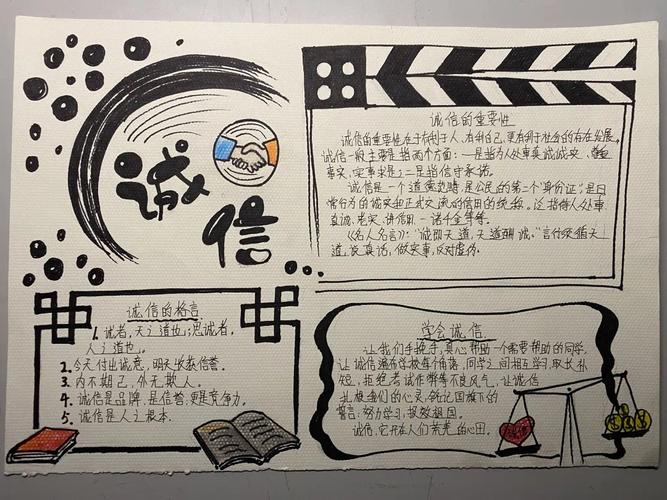 诚信
诚信的重要性
诚信的重要性在于有利于人、有利自己,更有利于社会的存在发展。
诚信一般主要是指两个方面:一是指为人处事真诚诚实、尊重
事实,实事求是;二是指信守承诺。
诚信是一个道德范畴,是公民的第二个"身份证",是日
常行为的诚实和正式交流的信用的统称。泛指待人处事
真诚、老实、讲信用,一诺千金等等。
《名人名言》:"诚即天道,天道酬诚。"言行须循天
道,说真话,做实事,反对虚伪。
诚信的格言
1. 诚者,天之道也,;思诚者,
人之道也。
2. 今天付出诚意,明天收获信誉。
3. 内不期己,外无欺人。
4. 诚信是品牌,是信誉,更是竞争力。
5. 诚信是人之根本.
学会诚信
让我们手挽手,真心帮助一个需要帮助的同学,
让诚信遍布学校每个角落,同学之间相互学习,取长补
短,拒绝考试作弊等不良风气,让诚信
扎根我们的心灵,铭记国旗下的
誓言,努力学习,报效祖国。
诚信,它开在人们荒芜的心田。